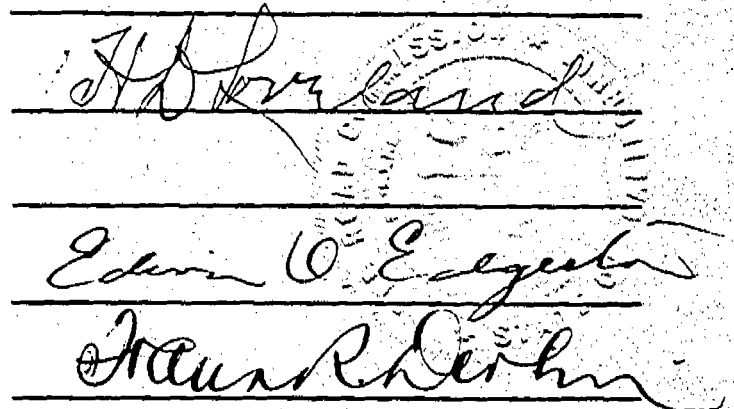 H D Loveland
Edwin O Edgerton
Frank R. Devlin